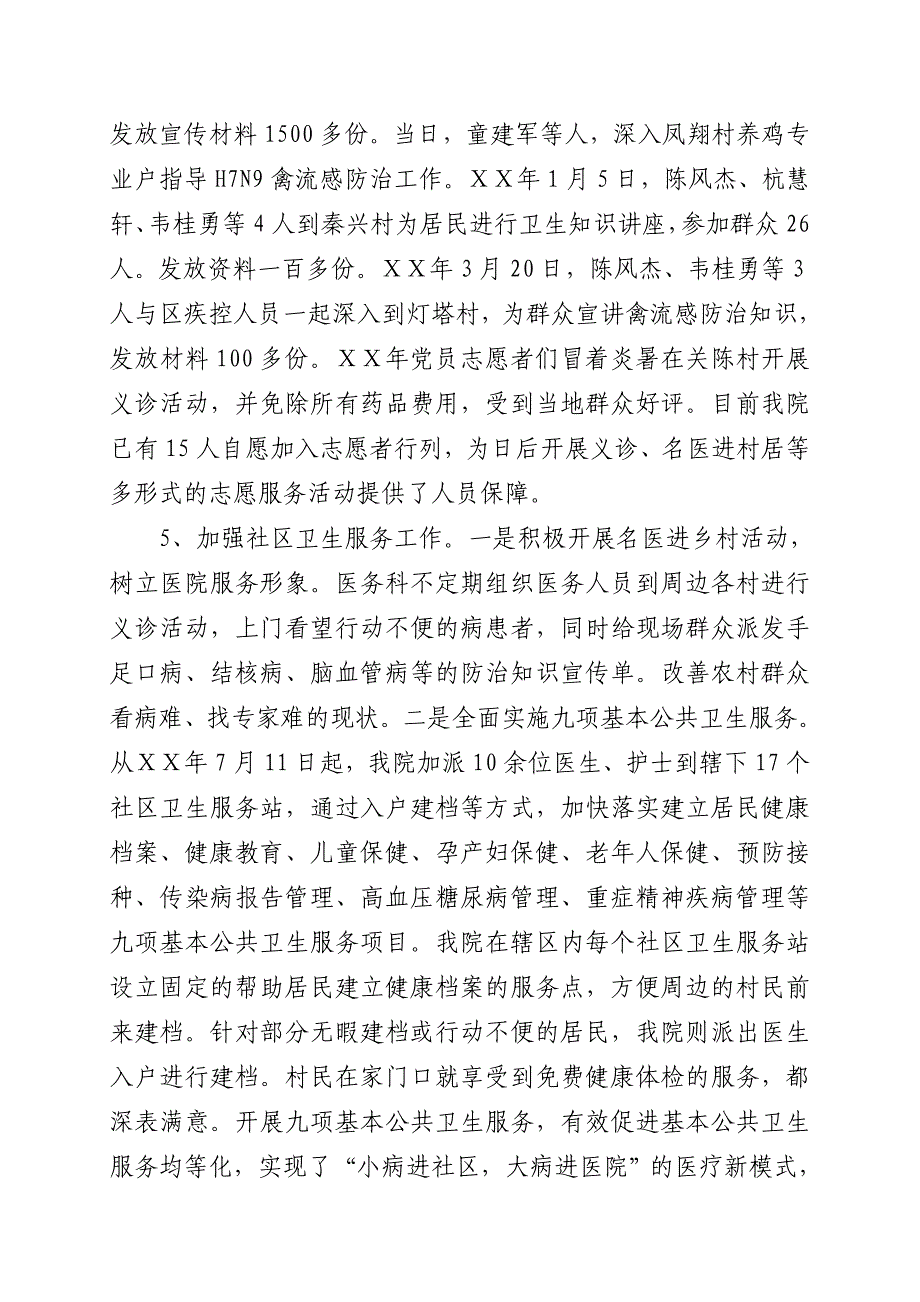 发放宣传材料 1500 多份。当日，童建军等人，深入凤翔村养鸡专
业户指导 H7N9 禽流感防治工作。ＸＸ年 1 月 5 日，陈风杰、杭慧
轩、韦桂勇等 4 人到秦兴村为居民进行卫生知识讲座，参加群众 26
人。发放资料一百多份。ＸＸ年 3 月 20 日，陈风杰、韦桂勇等 3
人与区疾控人员一起深入到灯塔村，为群众宣讲禽流感防治知识，
发放材料 100 多份。ＸＸ年党员志愿者们冒着炎暑在关陈村开展
义诊活动，并免除所有药品费用，受到当地群众好评。目前我院
已有 15 人自愿加入志愿者行列，为日后开展义诊、名医进村居等
多形式的志愿服务活动提供了人员保障。
5、加强社区卫生服务工作。一是积极开展名医进乡村活动，
树立医院服务形象。医务科不定期组织医务人员到周边各村进行
义诊活动，上门看望行动不便的病患者，同时给现场群众派发手
足口病、结核病、脑血管病等的防治知识宣传单。改善农村群众
看病难、找专家难的现状。二是全面实施九项基本公共卫生服务。
从ＸＸ年 7 月 11 日起，我院加派 10 余位医生、护士到辖下 17 个
社区卫生服务站，通过入户建档等方式，加快落实建立居民健康
档案、健康教育、儿童保健、孕产妇保健、老年人保健、预防接
种、传染病报告管理、高血压糖尿病管理、重症精神疾病管理等
九项基本公共卫生服务项目。我院在辖区内每个社区卫生服务站
设立固定的帮助居民建立健康档案的服务点，方便周边的村民前
来建档。针对部分无暇建档或行动不便的居民，我院则派出医生
入户进行建档。村民在家门口就享受到免费健康体检的服务，都
深表满意。开展九项基本公共卫生服务，有效促进基本公共卫生
服务均等化，实现了“小病进社区，大病进医院”的医疗新模式，